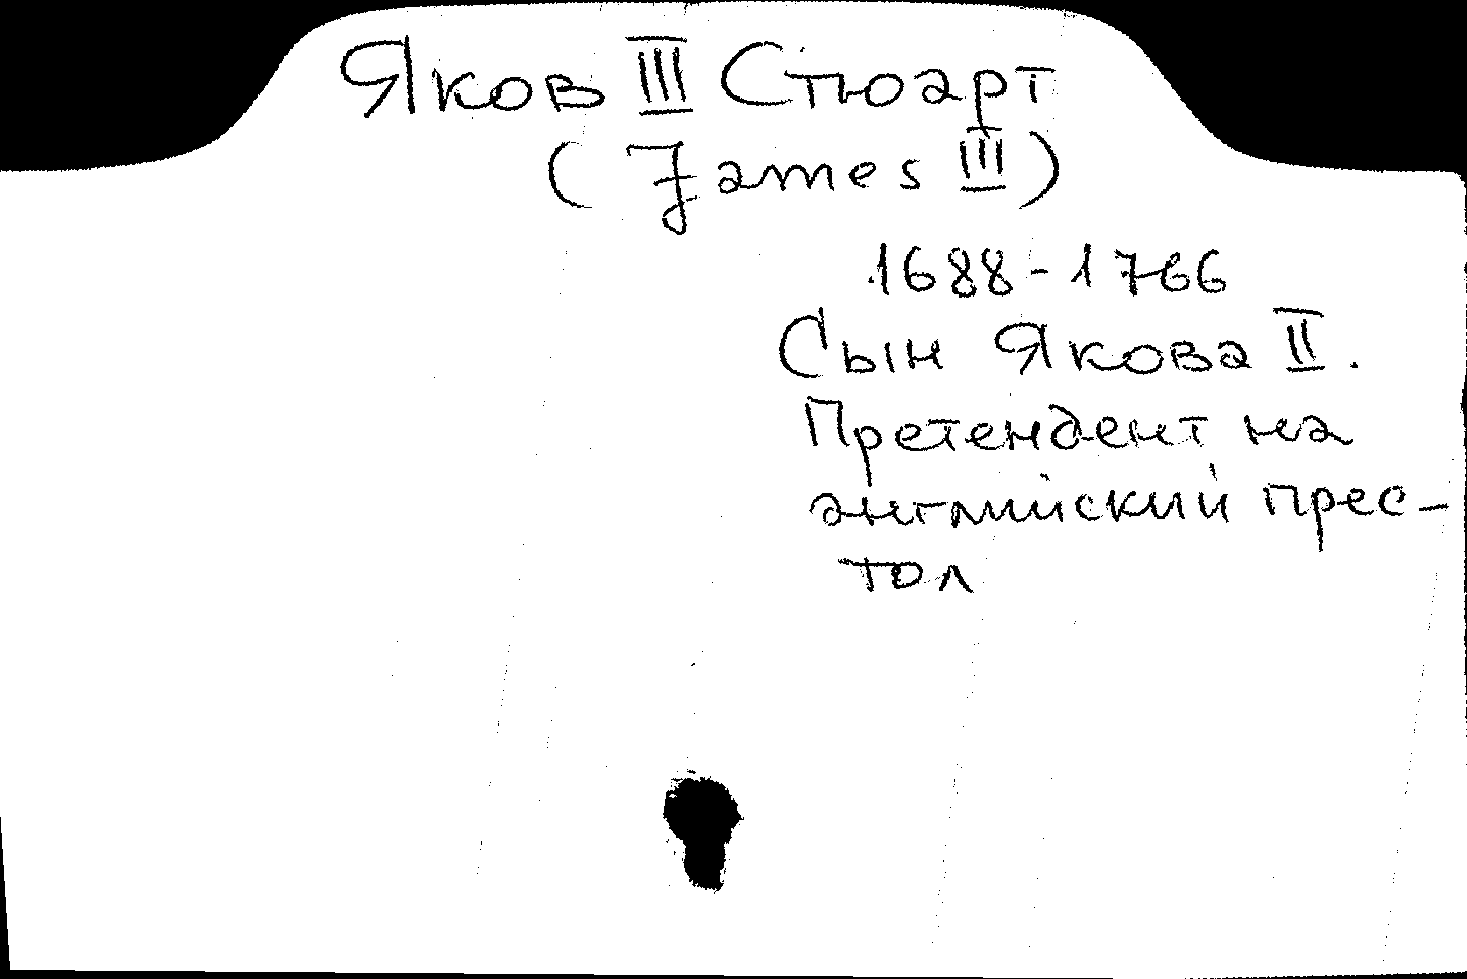 Яков III Стюарт
(James III)
1688-1766
Сын Якова II.
Претендент на
английский прес-
тол